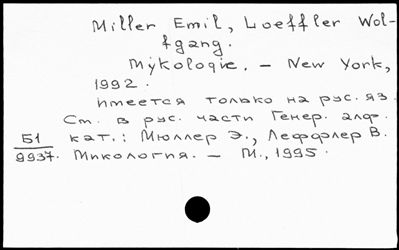 Miller Emil, Loeffler Wol-
fgang.
Mykologie. – New York,
1992.
имеется только на рус. яз.
См. в рус. части Генер. алф.
Б1 кат.: Мюллер Э., Леффлер В.
9937. Микология. – М., 1995.